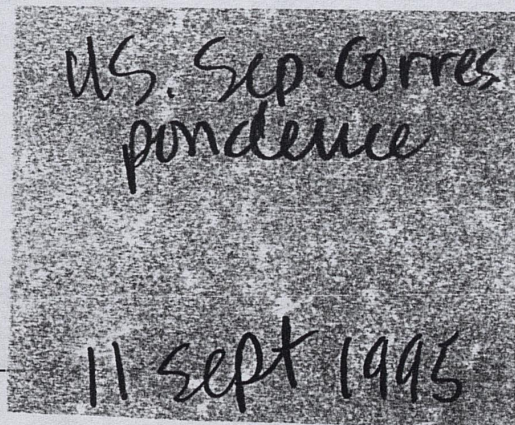 US. Sep. Corres
pondence
11 sept 1995